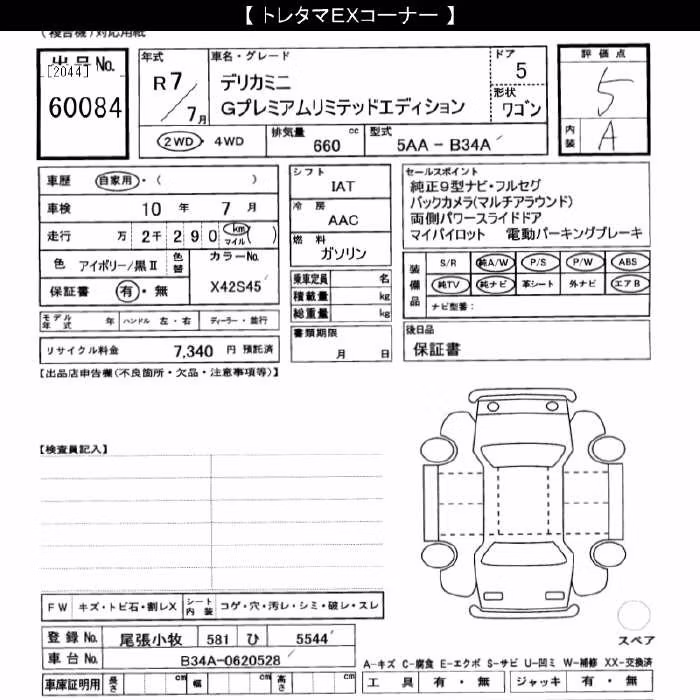 【 トレタマEXコーナー 】
(複合機)対応用紙
出品No.
[2044]
60084
年式
R7/7月
車名・グレード
デリカミニ
Gプレミアムリミテッドエディション
ドア
5
形状
ワゴン
評価点
5
内装 A
2WD・4WD
排気量 660 cc
型式 5AA-B34A
車歴 自家用・( )
車検 10年 7月
走行 万 2千290 km マイル ( )
色 アイボリー/黒Ⅱ 色替
カラーNo.
X42S45
保証書 有・無
モデル年式 年 ハンドル 左・右 ディーラー・並行
リサイクル料金 7,340 円 預託済
シフト
IAT
冷房
AAC
燃料
ガソリン
乗車定員 名
積載量 kg
総重量 kg
書類期限
月 日
セールスポイント
純正9型ナビ・フルセグ
バックカメラ(マルチアラウンド)
両側パワースライドドア
マイパイロット 電動パーキングブレーキ
装備品
S/R 純A/W P/S P/W ABS
純TV 純ナビ 革シート 外ナビ エアB
ナビ型番:
後日品
保証書
【出品店申告欄(不良箇所・欠品・注意事項等)】
【検査員記入】
FW キズ・トビ石・割レX シート内装 コゲ・穴・汚レ・シミ・破レ・スレ
登録No. 尾張小牧 581 ひ 5544
車台No. B34A-0620528
車庫証明用 長さ cm 幅 cm 高さ cm
スペア
A-キズ C-腐食 E-エクボ S-サビ U-凹ミ W-補修 XX-交換済
工具 有・無 ジャッキ 有・無